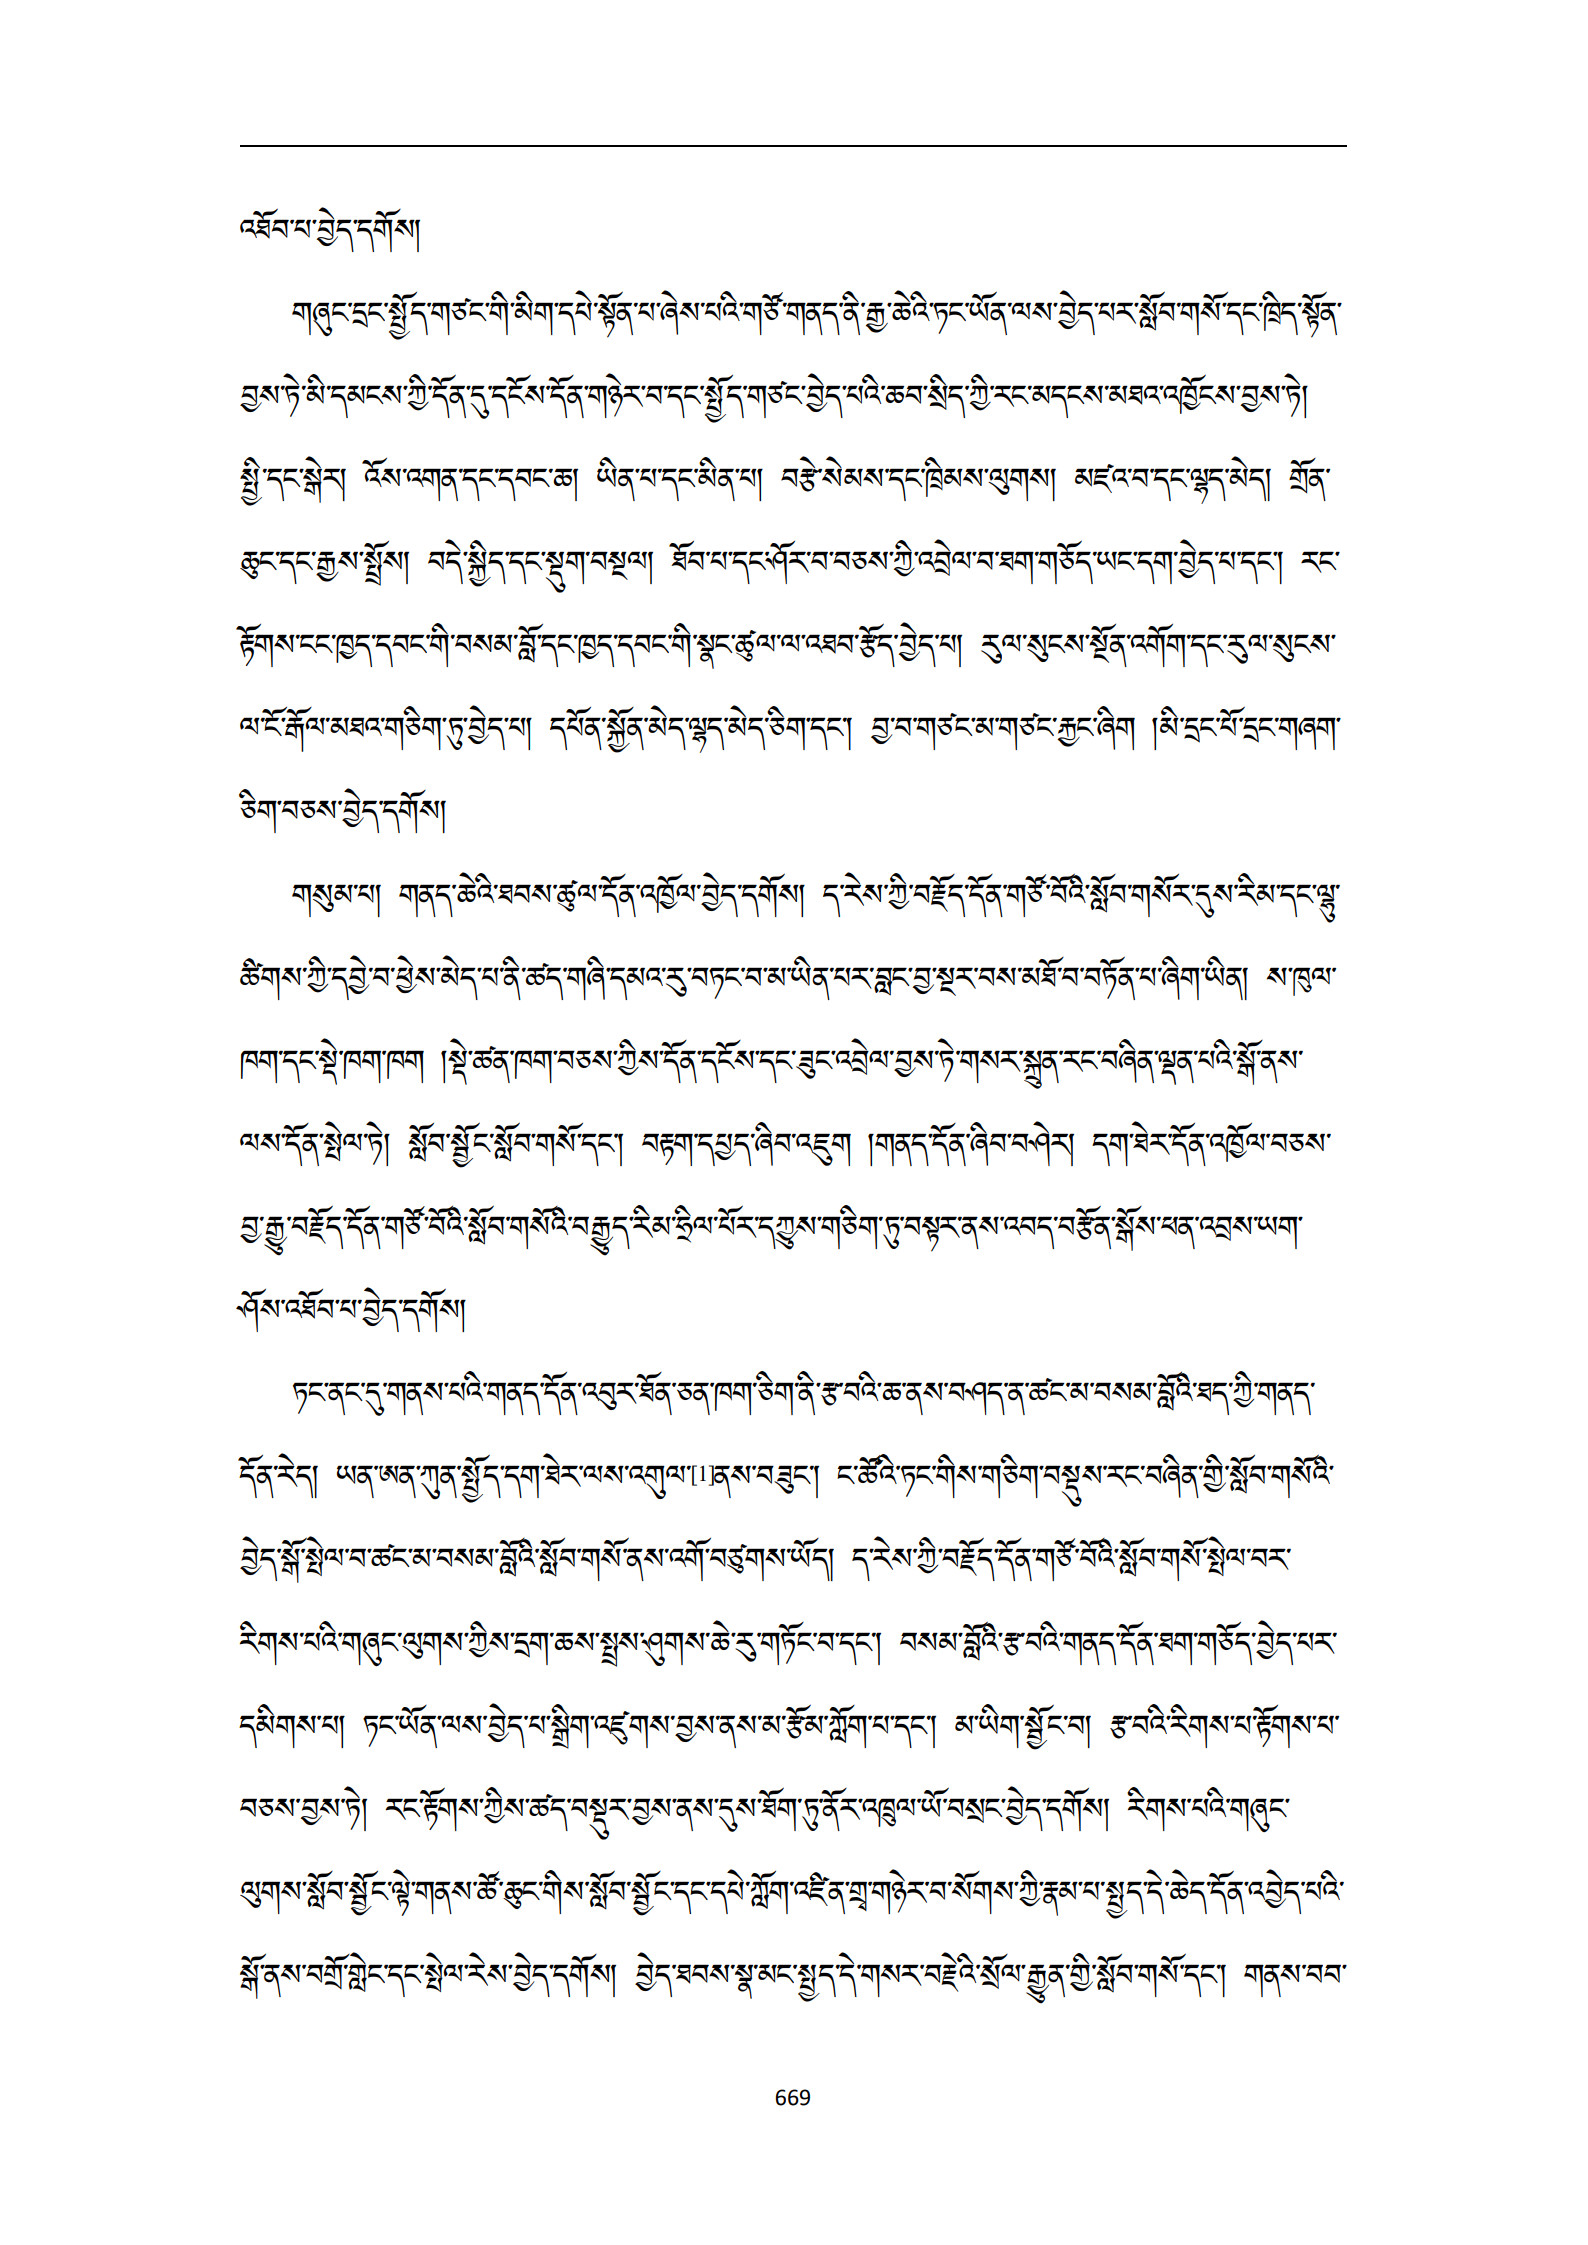 འཐོབ་པ་བྱེད་དགོས།
གཞུང་དྲང་སྤྱོད་གཙང་གི་མིག་དཔེ་སྟོན་པ་ཞེས་པའི་གཙོ་གནད་ནི་རྒྱ་ཆེའི་ཏང་ཡོན་ལས་བྱེད་པར་སློབ་གསོ་དང་ཁྲིད་སྟོན་
བྱས་ཏེ་མི་དམངས་ཀྱི་དོན་དུ་དངོས་དོན་གཉེར་བ་དང་སྤྱོད་གཙང་བྱེད་པའི་ཆབ་སྲིད་ཀྱི་རང་མདངས་མཐའ་འཁྱོངས་བྱས་ཏེ།
སྤྱི་དང་སྒེར། འོས་འགན་དང་དབང་ཆ། ཡིན་པ་དང་མིན་པ། བརྩེ་སེམས་དང་ཁྲིམས་ལུགས། མཛའ་བ་དང་ལྷད་མེད། གྲོན་
ཆུང་དང་རྒྱས་སྤྲོས། བདེ་སྐྱིད་དང་སྡུག་བསྔལ། ཐོབ་པ་དང་ཤོར་བ་བཅས་ཀྱི་འབྲེལ་བ་ཐག་གཅོད་ཡང་དག་བྱེད་པ་དང་། རང་
རྟོགས་ངང་ཁྱད་དབང་གི་བསམ་བློ་དང་ཁྱད་དབང་གི་སྣང་ཚུལ་ལ་འཐབ་རྩོད་བྱེད་པ། རུལ་སུངས་སྔོན་འགོག་དང་རུལ་སུངས་
ལ་ངོ་རྒོལ་མཐའ་གཅིག་ཏུ་བྱེད་པ། དཔོན་སྐྱོན་མེད་ལྷད་མེད་ཅིག་དང་། བྱ་བ་གཙང་མ་གཙང་རྐྱང་ཞིག །མི་དྲང་པོ་དྲང་གཞག་
ཅིག་བཅས་བྱེད་དགོས།
གསུམ་པ། གནད་ཆེའི་ཐབས་ཚུལ་དོན་འཁྱོལ་བྱེད་དགོས། ད་རེས་ཀྱི་བརྗོད་དོན་གཙོ་བོའི་སློབ་གསོར་དུས་རིམ་དང་ལྷུ་
ཚིགས་ཀྱི་དབྱེ་བ་ཕྱེས་མེད་པ་ནི་ཚད་གཞི་དམའ་རུ་བཏང་བ་མ་ཡིན་པར་བླང་བྱ་སྔར་བས་མཐོ་བ་བཏོན་པ་ཞིག་ཡིན། ས་ཁུལ་
ཁག་དང་སྡེ་ཁག་ཁག །སྡེ་ཚན་ཁག་བཅས་ཀྱིས་དོན་དངོས་དང་ཟུང་འབྲེལ་བྱས་ཏེ་གསར་སྐྲུན་རང་བཞིན་ལྡན་པའི་སྒོ་ནས་
ལས་དོན་སྤེལ་ཏེ། སློབ་སྦྱོང་སློབ་གསོ་དང་། བརྟག་དཔྱད་ཞིབ་འཇུག །གནད་དོན་ཞིབ་བཤེར། དག་ཐེར་དོན་འཁྱོལ་བཅས་
བྱ་རྒྱུ་བརྗོད་དོན་གཙོ་བོའི་སློབ་གསོའི་བརྒྱུད་རིམ་ཧྲིལ་པོར་དཀྱུས་གཅིག་ཏུ་བསྟར་ནས་འབད་བརྩོན་སྒོས་ཕན་འབྲས་ཡག་
ཤོས་འཐོབ་པ་བྱེད་དགོས།
ཏང་ནང་དུ་གནས་པའི་གནད་དོན་འབུར་ཐོན་ཅན་ཁག་ཅིག་ནི་རྩ་བའི་ཆ་ནས་བཤད་ན་ཚང་མ་བསམ་བློའི་ཐད་ཀྱི་གནད་
དོན་རེད། ཡན་ཨན་ཀུན་སྤྱོད་དག་ཐེར་ལས་འགུལ་[1]ནས་བཟུང་། ང་ཚོའི་ཏང་གིས་གཅིག་བསྡུས་རང་བཞིན་གྱི་སློབ་གསོའི་
བྱེད་སྒོ་སྤེལ་བ་ཚང་མ་བསམ་བློའི་སློབ་གསོ་ནས་འགོ་བཙུགས་ཡོད། ད་རེས་ཀྱི་བརྗོད་དོན་གཙོ་བོའི་སློབ་གསོ་སྤེལ་བར་
རིགས་པའི་གཞུང་ལུགས་ཀྱིས་དྲག་ཆས་སྤྲས་ཤུགས་ཆེ་རུ་གཏོང་བ་དང་། བསམ་བློའི་རྩ་བའི་གནད་དོན་ཐག་གཅོད་བྱེད་པར་
དམིགས་པ། ཏང་ཡོན་ལས་བྱེད་པ་སྒྲིག་འཛུགས་བྱས་ནས་མ་རྩོམ་ཀློག་པ་དང་། མ་ཡིག་སྦྱོང་བ། རྩ་བའི་རིགས་པ་རྟོགས་པ་
བཅས་བྱས་ཏེ། རང་རྟོགས་ཀྱིས་ཚད་བསྡུར་བྱས་ནས་དུས་ཐོག་ཏུ་ནོར་འཁྲུལ་ཡོ་བསྲང་བྱེད་དགོས། རིགས་པའི་གཞུང་
ལུགས་སློབ་སྦྱོང་ལྟེ་གནས་ཚོ་ཆུང་གིས་སློབ་སྦྱོང་དང་དཔེ་ཀློག་འཛིན་གྲྭ་གཉེར་བ་སོགས་ཀྱི་རྣམ་པ་སྤྱད་དེ་ཆེད་དོན་འབྱེད་པའི་
སྒོ་ནས་བགྲོ་གླེང་དང་སྤེལ་རེས་བྱེད་དགོས། བྱེད་ཐབས་སྣ་མང་སྤྱད་དེ་གསར་བརྗེའི་སྲོལ་རྒྱུན་གྱི་སློབ་གསོ་དང་། གནས་བབ་
669